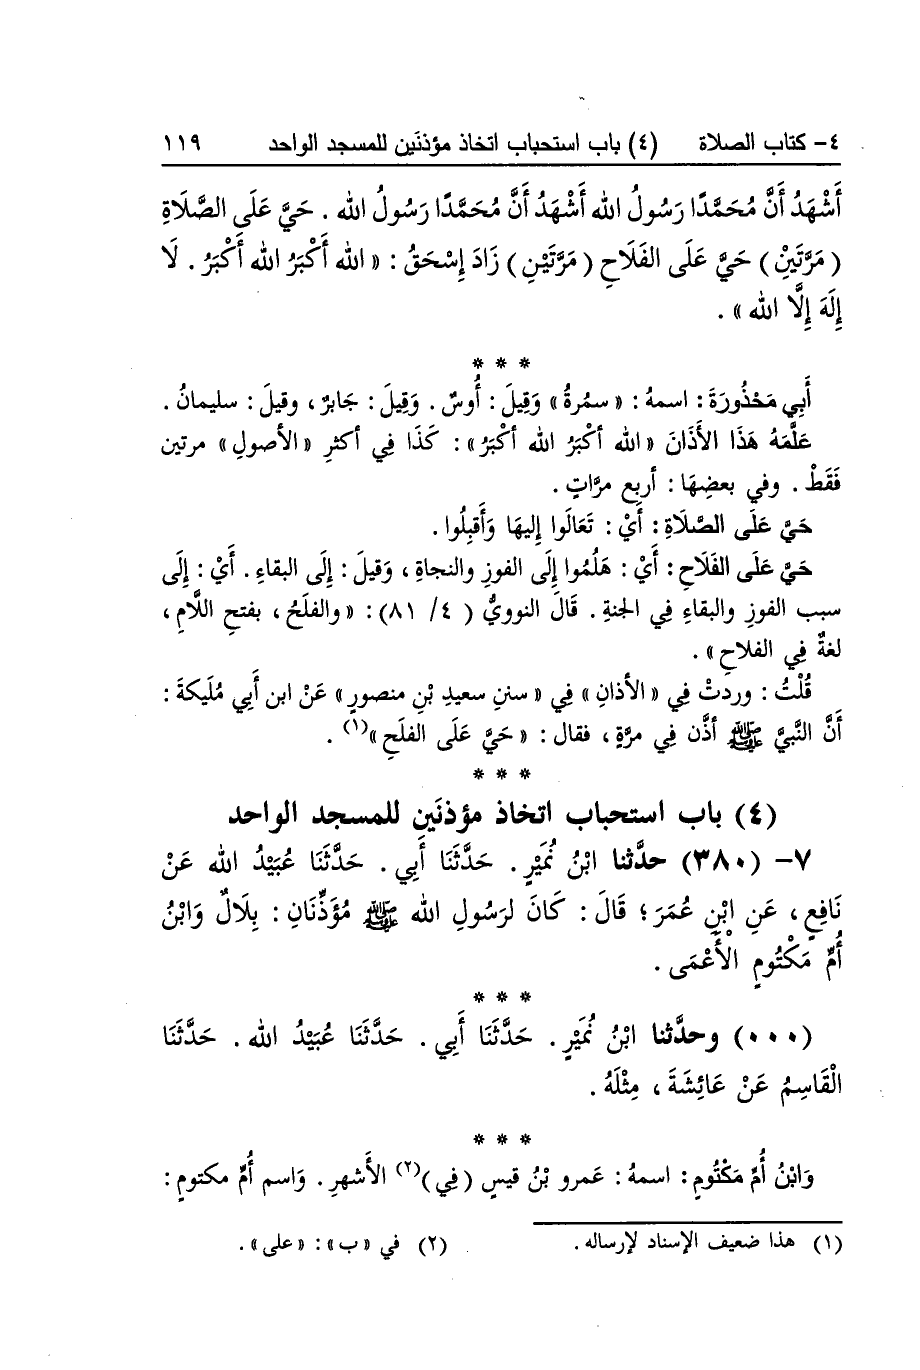 ٤- كتاب الصلاة (٤) باب استحباب اتخاذ مؤذنَين للمسجد الواحد ١١٩
أَشْهَدُ أَنَّ مُحَمَّدًا رَسُولُ الله أَشْهَدُ أَنَّ مُحَمَّدًا رَسُولُ الله . حَيَّ عَلَى الصَّلَاةِ
( مَرَّتَيْنِ ) حَيَّ عَلَى الفَلَاحِ ( مَرَّتَيْنِ ) زَادَ إِسْحَقُ : « الله أَكْبَرُ الله أَكْبَرُ . لَا
إِلَهَ إِلَّا الله » .
* * *
أَبِي مَحْذُورَةَ : اسمهُ : « سمُرةُ » وَقِيلَ : أُوسٌ . وَقِيلَ : جَابرٌ ، وقيلَ : سليمانُ .
عَلَّمَهُ هَذَا الأَذَانَ « الله أكْبَرُ الله أكْبَرُ » : كَذَا فِي أكثرِ « الأصولِ » مرتين
فَقَطْ . وفي بعضِهَا : أربع مرَّاتٍ .
حَيَّ عَلَى الصَّلَاةِ : أَيْ : تَعَالَوا إليهَا وَأَقبِلُوا .
حَيَّ عَلَى الفَلَاحِ : أَيْ : هَلُمُوا إِلَى الفوزِ والنجاةِ ، وَقيلَ : إِلَى البقاءِ . أَيْ : إِلَى
سبب الفوزِ والبقاءِ فِي الجنةِ . قَالَ النوويُّ ( ٤/ ٨١) : « والفلَحُ ، بفتحِ اللَّامِ ،
لغةٌ فِي الفلاحِ » .
قُلْتُ : وردتْ فِي « الأذانِ » فِي « سننِ سعيدِ بْنِ منصورٍ » عَنْ ابن أَبِي مُلَيكةَ :
أَنَّ النَّبيَّ ﷺ أذَّن فِي مرَّةٍ ، فقال : « حَيَّ عَلَى الفلَحِ »(١) .
* * *
(٤) باب استحباب اتخاذ مؤذنَين للمسجد الواحد
٧- (٣٨٠) حدَّثنا ابْنُ نُمَيْرٍ . حَدَّثَنَا أَبِي . حَدَّثَنَا عُبَيْدُ الله عَنْ
نَافِعٍ ، عَنِ ابْنِ عُمَرَ ؛ قَالَ : كَانَ لرَسُولِ الله ﷺ مُؤَذِّنَانِ : بِلَالٌ وَابْنُ
أُمِّ مَكْتُومٍ الْأَعْمَى .
* * *
(٠٠٠) وحدَّثنا ابْنُ نُمَيْرٍ . حَدَّثَنَا أَبِي . حَدَّثَنَا عُبَيْدُ الله . حَدَّثَنَا
الْقَاسِمُ عَنْ عَائِشَةَ ، مِثْلَهُ .
* * *
وَابْنُ أُمِّ مَكْتُومٍ : اسمهُ : عَمرو بْنُ قيسٍ (فِي)(٢) الأَشهرِ . وَاسم أُمِّ مكتومٍ :
(١) هذا ضعيف الإسناد لإرساله .
(٢) في «ب» : «على» .